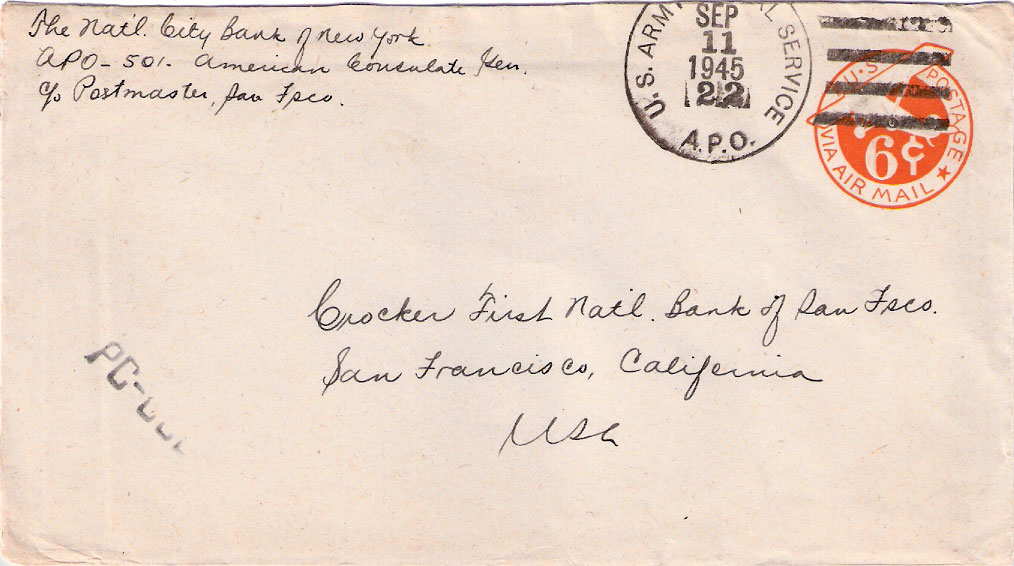 The Nat'l. City Bank of New York.
APO-501- American Consulate Gen.
c/o Postmaster, San Fsco.
U.S. ARMY POSTAL SERVICE
SEP
11
1945
22
A.P.O.
U.S. POSTAGE
6¢
VIA AIR MAIL
Crocker First Nat'l. Bank of San Fsco.
San Francisco, California
USA
PC-